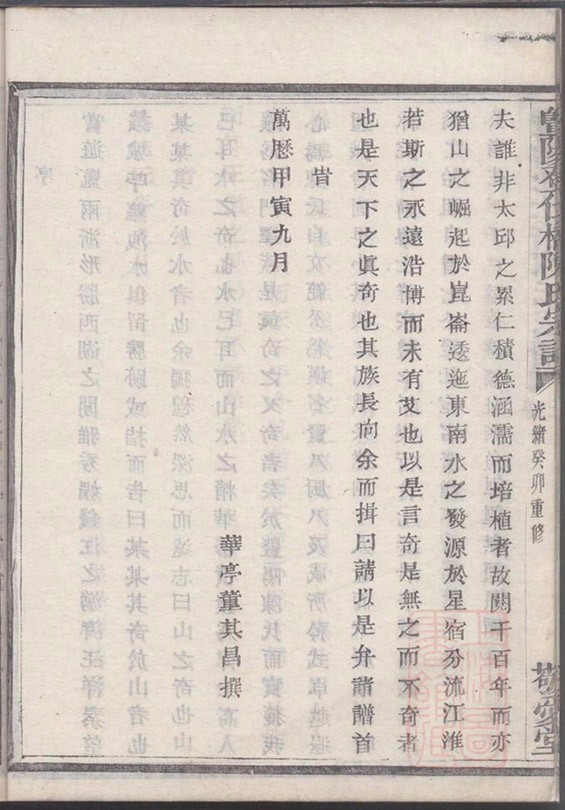 夫誰非太邱之累仁積德涵濡而培植者故閱千百年而亦
猶山之崛起於崑崙逶迤東南水之發源於星宿分流江淮
若斯之永遠浩博而未有艾也以是言奇是無之而不奇者
也是天下之眞奇也其族長向余而揖曰請以是弁諸譜首
旹
萬厯甲寅九月
華亭董其昌撰
陳氏宗譜
光緒癸卯重修